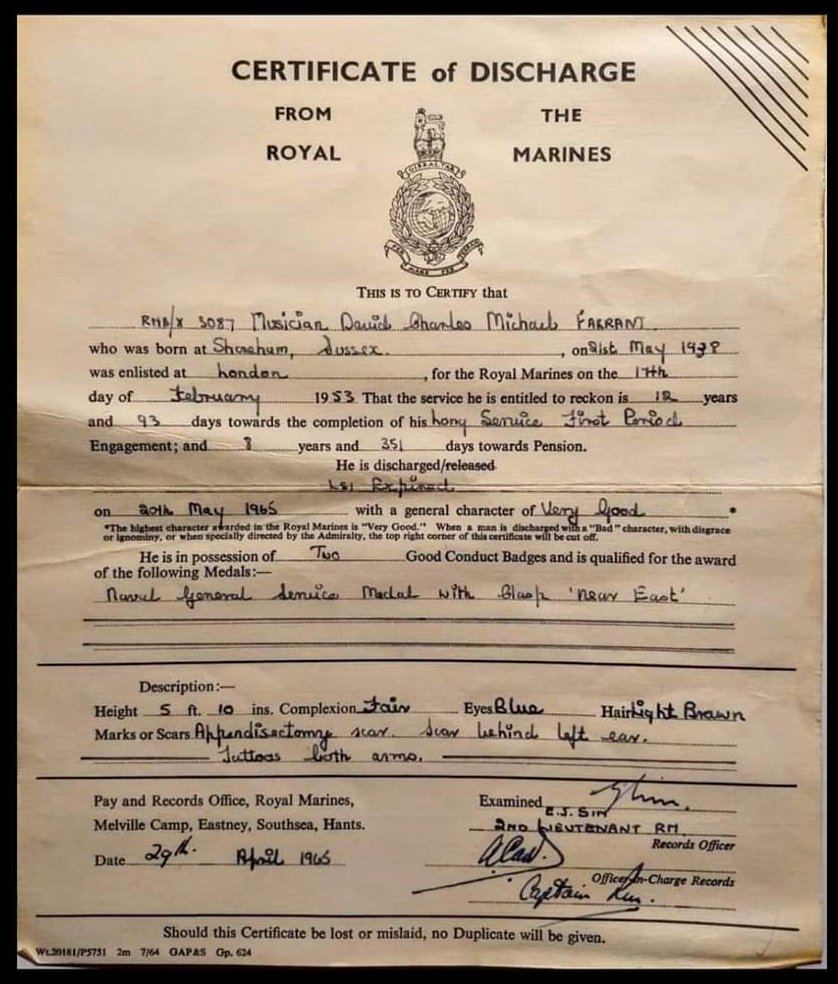 CERTIFICATE of DISCHARGE
FROM THE
ROYAL MARINES
GIBRALTAR
PER MARE PER TERRAM
THIS IS TO CERTIFY that
RMB/X 3087 Musician David Charles Michael FARRANT
who was born at Shoreham, Sussex. , on 21st May 1938
was enlisted at London , for the Royal Marines on the 17th
day of February 1953 That the service he is entitled to reckon is 12 years
and 93 days towards the completion of his Long Service First Period
Engagement; and 8 years and 351 days towards Pension.
He is discharged/released
Expired
on 20th May 1965 with a general character of Very Good *
*The highest character awarded in the Royal Marines is "Very Good." When a man is discharged with a "Bad" character, with disgrace
or ignominy, or when specially directed by the Admiralty, the top right corner of this certificate will be cut off.
He is in possession of Two Good Conduct Badges and is qualified for the award
of the following Medals:—
Naval General Service Medal with Clasp 'Near East'
Description:—
Height 5 ft. 10 ins. Complexion Fair Eyes Blue Hair Light Brown
Marks or Scars Appendisectomy scar. Scar behind left ear.
Tattoos both arms.
Pay and Records Office, Royal Marines, Examined
Melville Camp, Eastney, Southsea, Hants. E.J. SIN
2ND LIEUTENANT RM
Records Officer
Date 29th. April 1965
Officer-in-Charge Records
Captain
Should this Certificate be lost or mislaid, no Duplicate will be given.
Wt.20181/P5751 2m 7/64 GAP&S Gp. 624